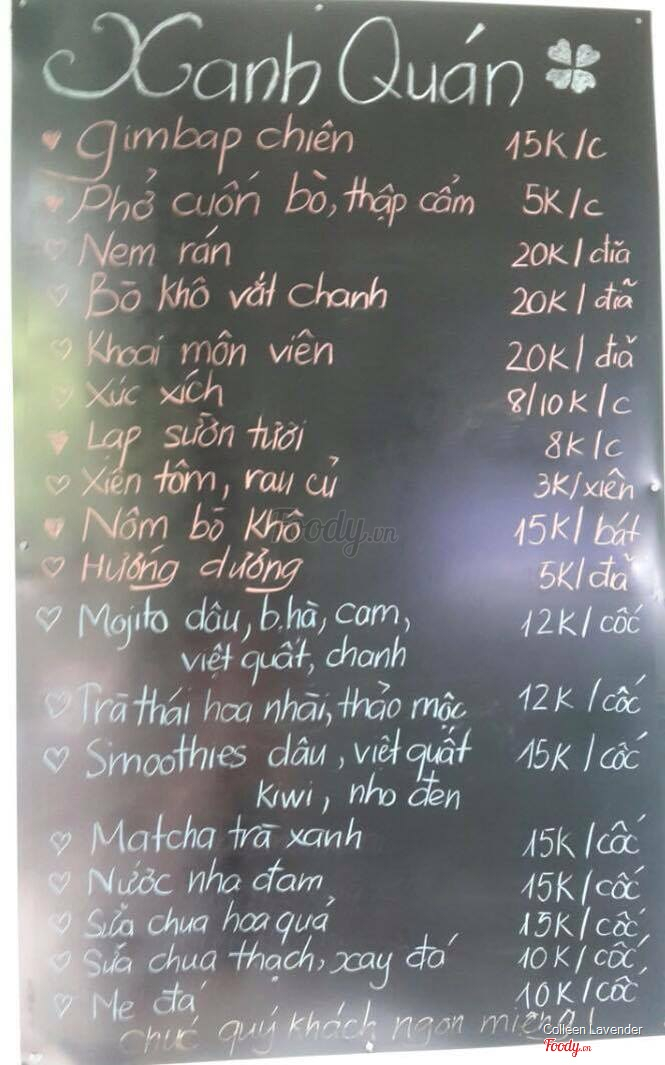 Xanh Quán
Gimbap chiên 15K/c
Phở cuốn bò, thập cẩm 5K/c
Nem rán 20K/đĩa
Bò khô vắt chanh 20K/đĩa
Khoai môn viên 20K/đĩa
Xúc xích 8/10K/c
Lạp sườn tươi 8K/c
Xiên tôm, rau củ 3K/xiên
Nộm bò khô 15K/bát
Hướng dương 5K/đĩa
Mojito dâu, b.hà, cam, 12K/cốc
việt quất, chanh
Trà thái hoa nhài, thảo mộc 12K/cốc
Smoothies dâu, việt quất 15K/cốc
kiwi, nho đen
Matcha trà xanh 15K/cốc
Nước nha đam 15K/cốc
Sữa chua hoa quả 15K/cốc
Sữa chua thạch, xay đá 10K/cốc
Me đá 10K/cốc
Chúc quý khách ngon miệng!
Foody.vn
Colleen Lavender
Foody.vn